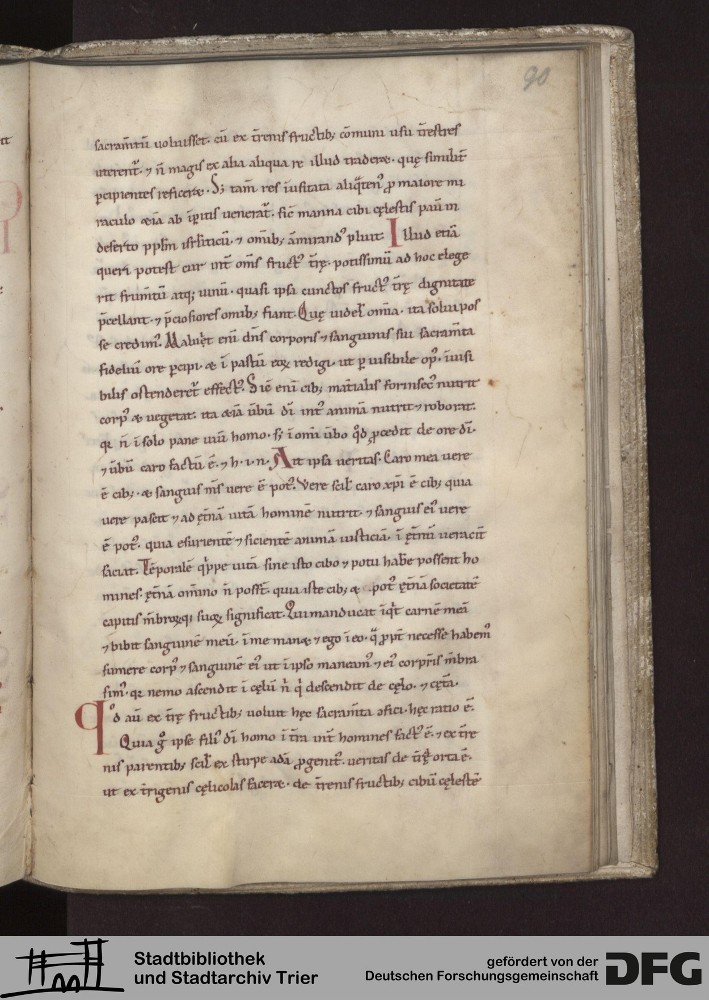 90
sacram̄tū voluisset. cū ex t̄renis fructib; cōmuni usu t̄restres
uterent̄. ⁊ n̄ magis ex alia aliqua re illud traderæ. quę similit̄
pcipientes reficeræ. S; tam̄ res iusitata aliq̄ten' ꝓ maiore mi
raculo æiā ab ip̄itis venerat̄. sic̄ manna cibi cęlestis pau in
deserto ppl̄m isrl̄iticū. ⁊ omib; āmirand' pluit. Illud etiā
queri potest cur int̄ om̄s fruct' t̄rę. potissimū ad hoc elege
rit frum̄tū atq; vinū. quasi ipsa cunctos fruct' t̄rę dignitate
p̄cellant. ⁊ p̄ciosiores omib; fiant. Quę videl̄ om̄ia. ita solui pos
se credim'. Maluit enī dn̄s corporis ⁊ sanguinis sui sacram̄ta
fideliū ore p̄cipi. æ ī pastū eoꝝ redigi. ut p visibile op'. īuisi
bilis ostenderet̄ effect'. Sic̄ enī cib; mat̄ialis forinsec' nutrit
corp' æ vegetat. ita æiā ūbū dī int' animā nutrit ⁊ roborat.
qꝛ n̄ ī solo pane vivit homo. s; ī omī ūbo qd̄ ꝓcedit de ore dī.
⁊ ūbū caro factū ē. ⁊ h. i. n. Ait ipsa veritas. Caro mea vere
ē cib; æ sanguis m̄s vere ē pot'. Vere scil̄ caro xp̄i ē cib; quia
vere pascit ⁊ ad ęt̄nā vitā hominē nutrit. ⁊ sanguis ei' vere
ē pot'. quia esurientē ⁊ sicientē animā iusticiā. ī ęt̄nū veracit̄
saciat. Tēporalē q̄ppe vitā sine isto cibo ⁊ potu hab̄e possent ho
mines. ęt̄nā omīno n̄ poss̄t. quia iste cib; æ pot' ęt̄nā societatē
capitis m̄broꝝq; suoꝝ significat. Qui manducat īq̄t carnē meā
⁊ bibit sanguinē meū. ī me manæ ⁊ ego ī eo. q̄ ꝓpt̄ necesse habem'
sumere corp' ⁊ sanguinē ei' ut ī ipso maneam' ⁊ ei' corpris m̄bra
sim'. qꝛ nemo ascendit ī cęlū n̄ q̄ descendit de cęlo. ⁊ cęt̄a.
Qd' au ex t̄rę fructib; voluit hęc sacram̄ta ofici. hęc ratio ē.
Quia g° ipse fili' dī homo ī t̄ra int̄ homines fact' ē. ⁊ ex t̄re
nis parentib; scil̄ ex stirpe adā ꝓgenit'. veritas de t̄rę orta ē.
ut ex t̄rigenis cęlicolas faceræ. de t̄renis fructib; cibū cęlestē
Stadtbibliothek
und Stadtarchiv Trier
gefördert von der
Deutschen Forschungsgemeinschaft
DFG